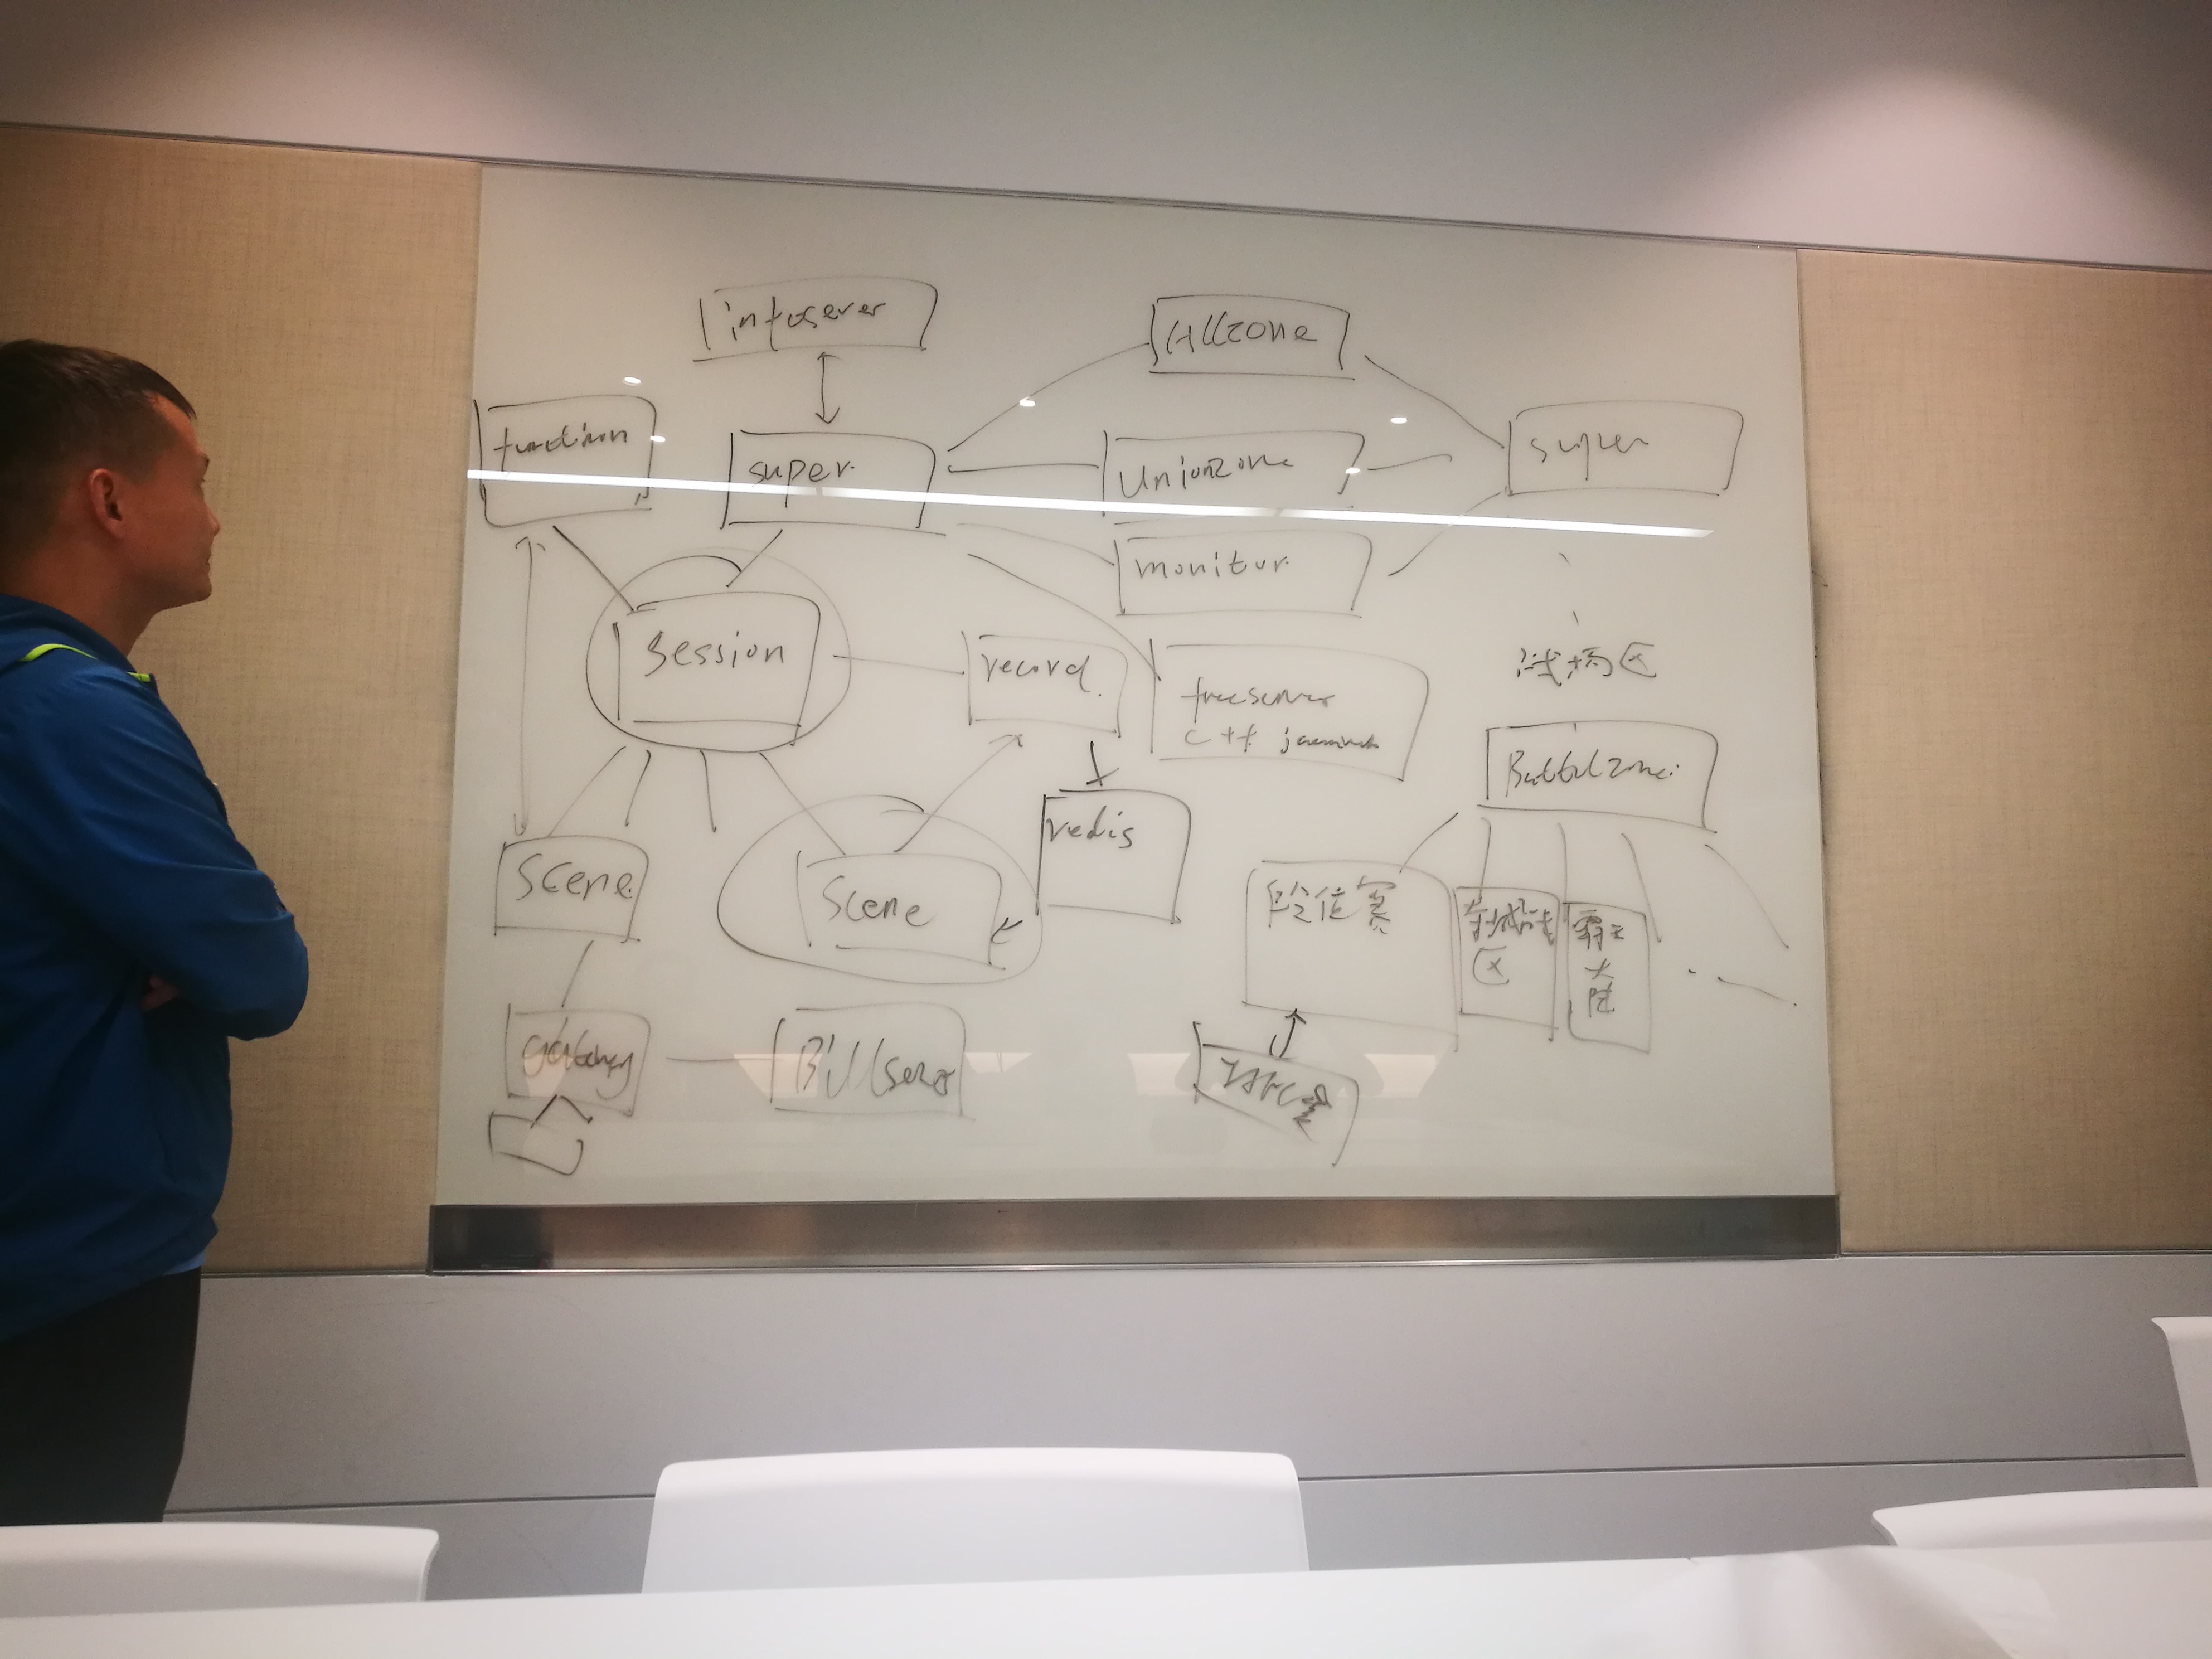 infoserver
Allzone
function
super
Unionzone
super
monitor
session
record
freeserver
c++
战场区
redis
Battlezone
Scene
Scene
段位赛
区
大
陆
gateway
Billserver